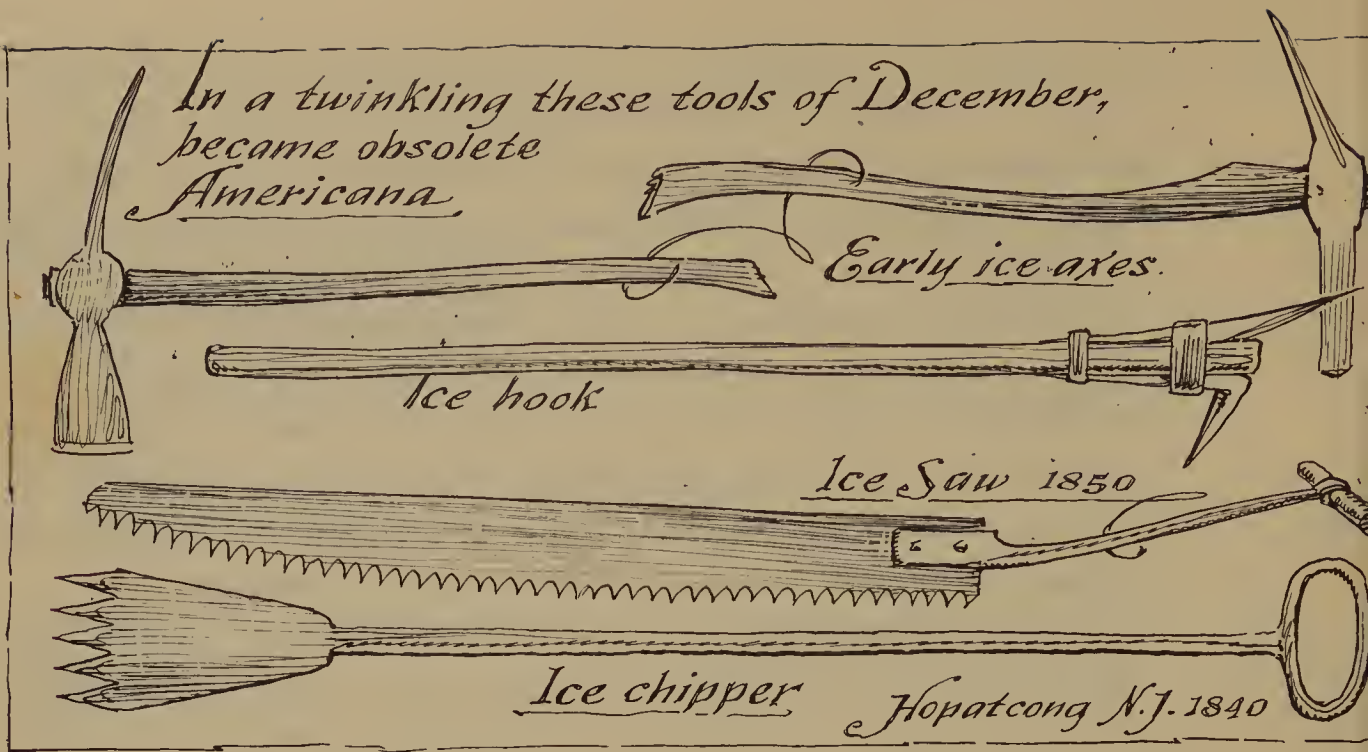 In a twinkling these tools of December,
became obsolete
Americana
Early ice axes.
Ice hook
Ice Saw 1850
Ice chipper
Hopatcong N.J. 1840